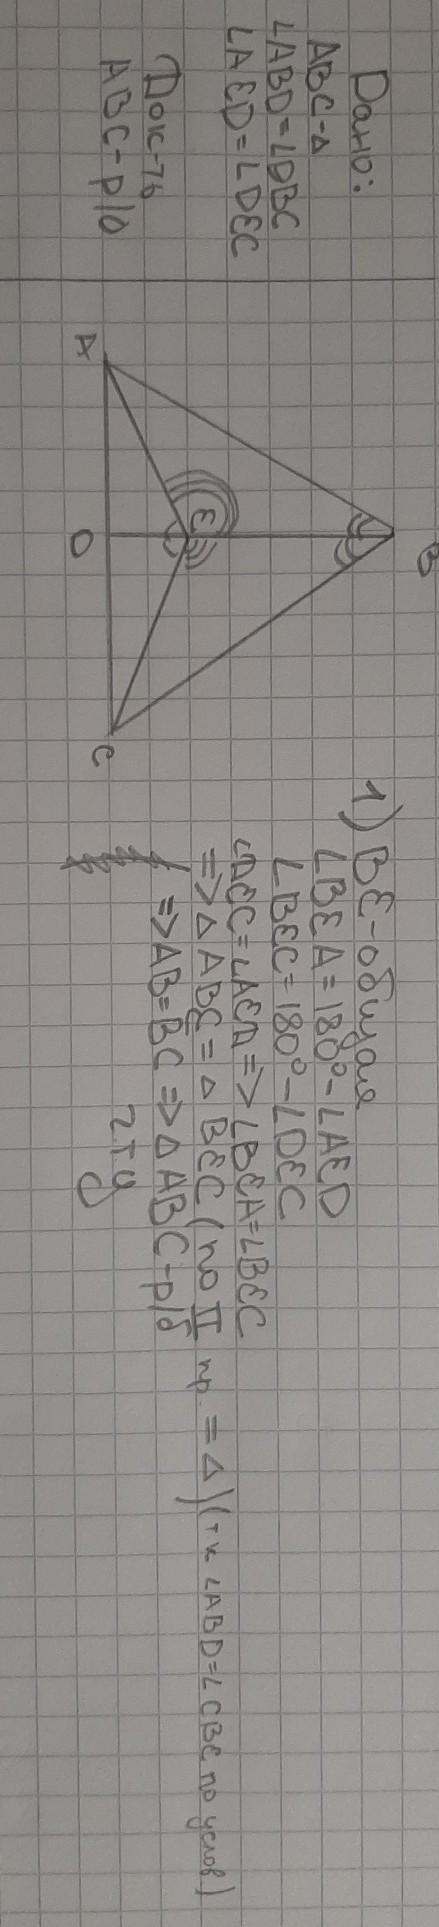 Дано:
ABC-Δ
∠ABD=∠DBC
∠AED=∠DEC
Док-ть
ABC-р/б
A
B
C
D
E
1) BE-общая
∠BEA=180°-∠AED
∠BEC=180°-∠DEC
∠DEC=∠AED=>∠BEA=∠BEC
=>Δ ABE=Δ BEC (по II пр. = Δ) (тк ∠ABD=∠CBE по услов)
=>AB=BC=>Δ ABC-р/б
чтд